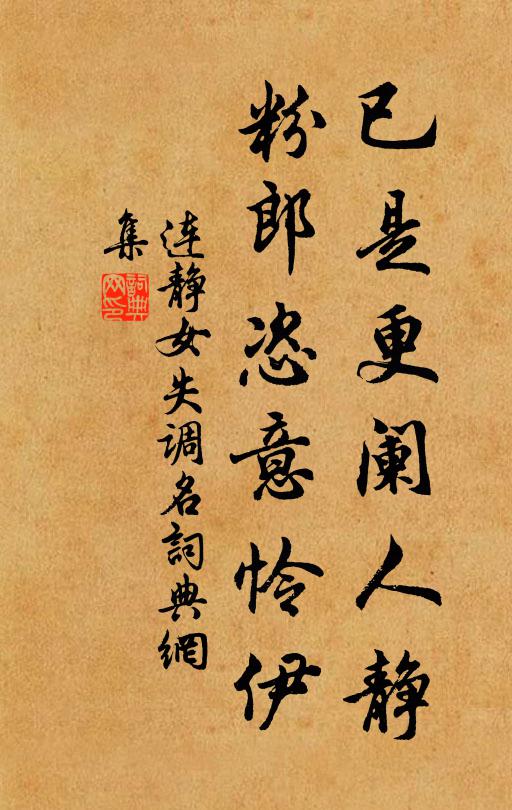 已是更阑人静
粉郎恣意怜伊
连静女失调名詞典網
集
詞典网印